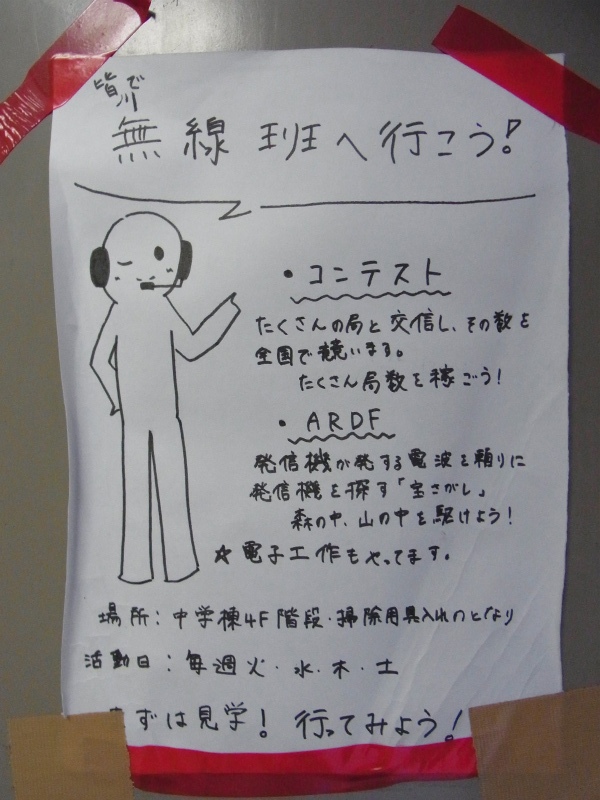 皆で
無線班へ行こう!
・コンテスト
たくさんの局と交信し、その数を
全国で競います。
たくさん局数を稼ごう!
・ARDF
発信機が発する電波を頼りに
発信機を探す「宝さがし」
森の中、山の中を駆けよう!
☆電子工作もやってます。
場所:中学棟4F階段・掃除用具入れのとなり
活動日:毎週火・水・木・土
まずは見学! 行ってみよう!